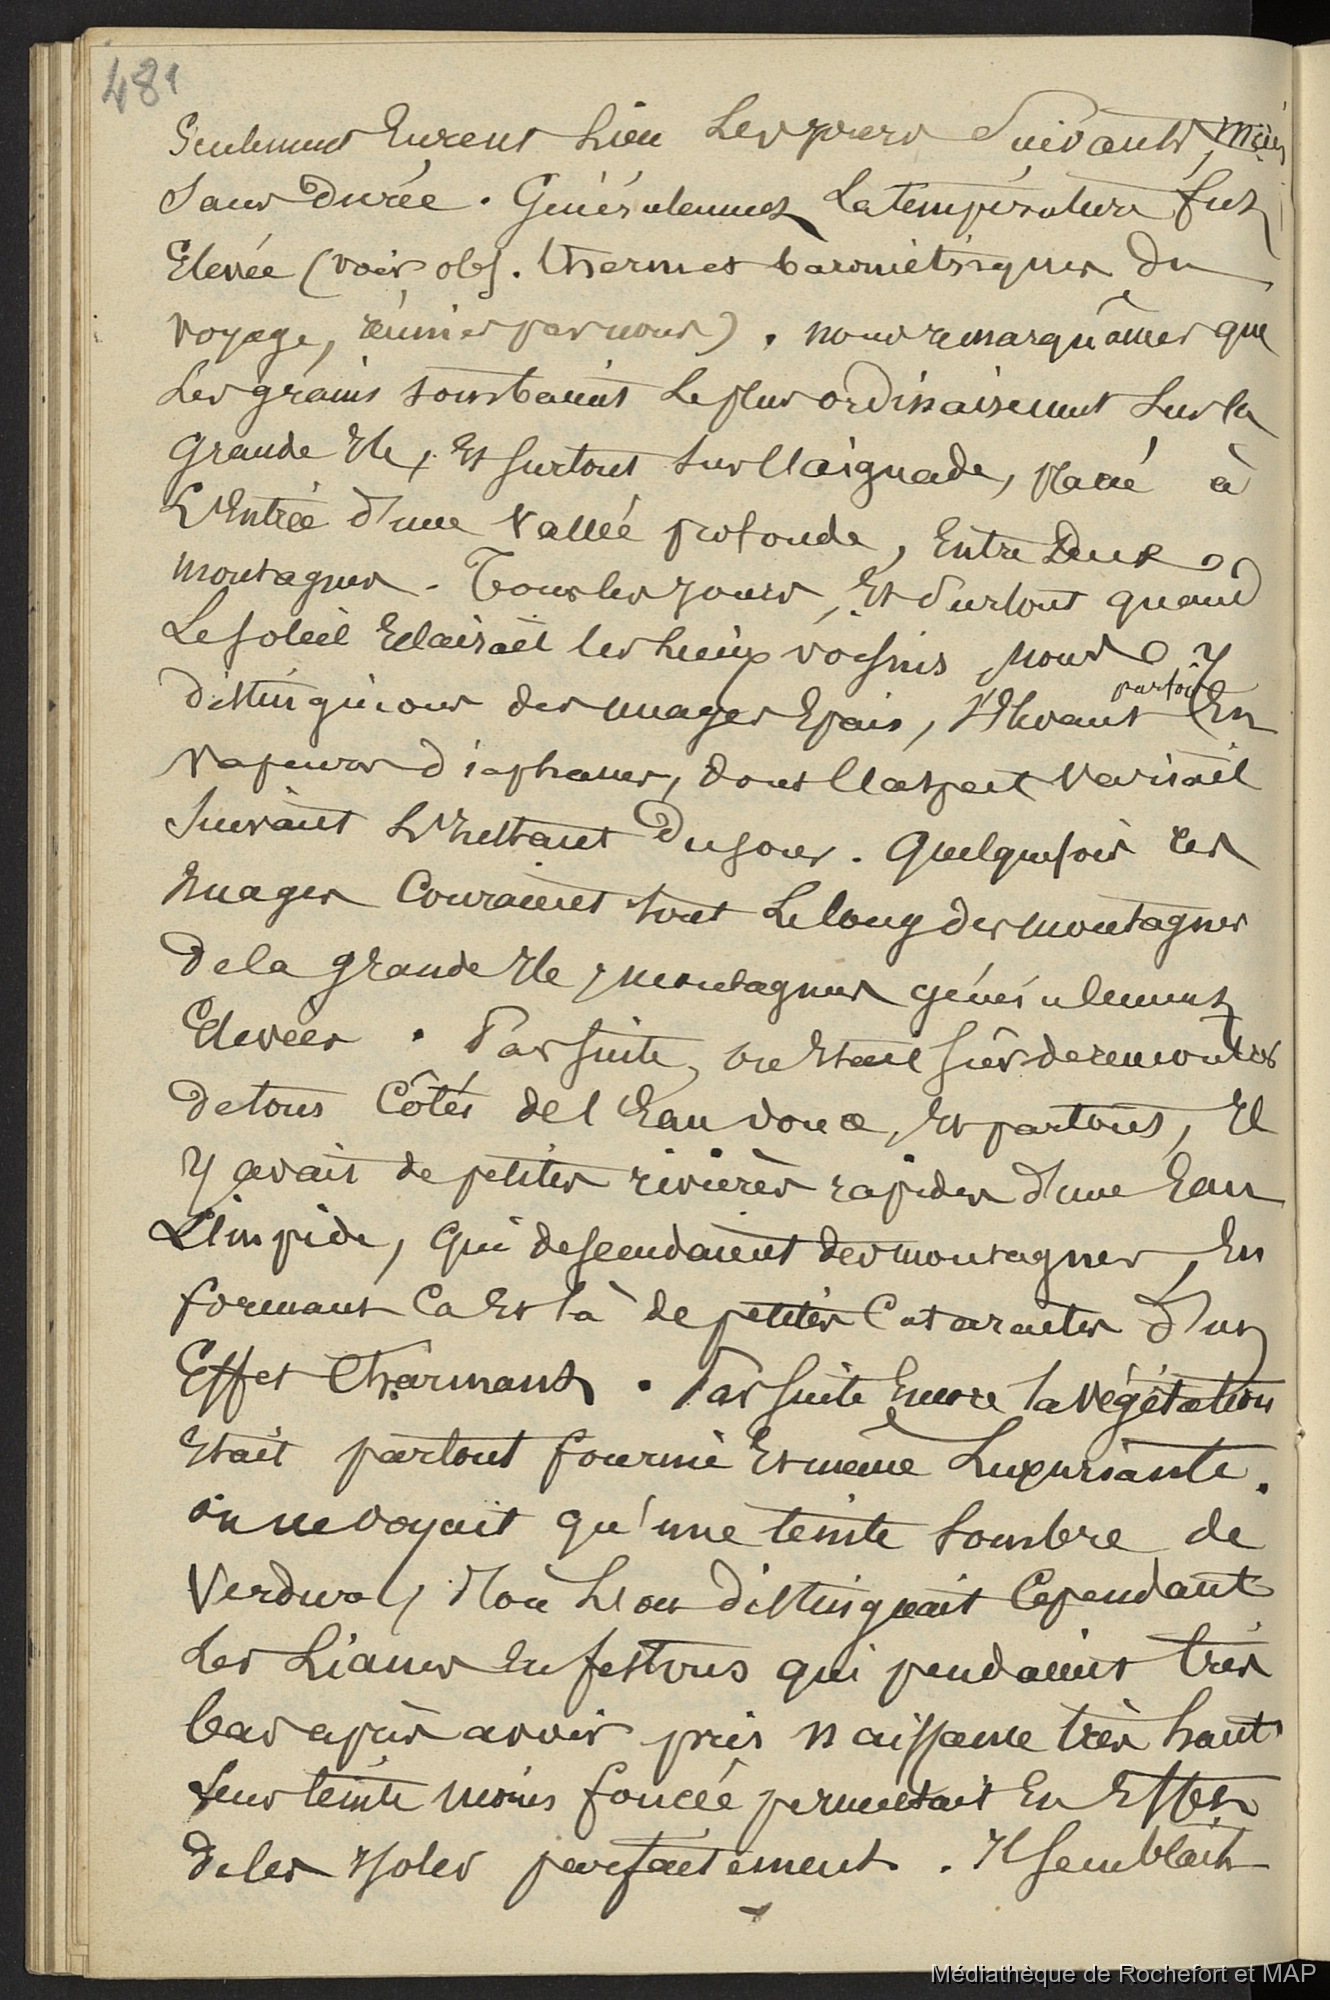 481
Seulement Eurent Lieu Les jours Suivants, mais
Sans Durée. Généralement La température fut
Elevée (voir obs. thermo et barométriques du
voyage, réunies par nous). nous remarquâmes que
Les grains tombaient Le plus ordinairement Sur la
Grande Ile, Et Surtout Sur l'aiguade, placée à
L'Entrée d'une Vallée profonde, Entre Deux
montagnes. Tous les jours, Et Surtout quand
Le Soleil Eclairait les Lieux voisins, nous y
distinguions des nuages Epais, S'Elevant parfois En
Vapeurs diaphanes, dont l'aspect Variait
Suivant L'Instant Du jour. Quelquefois ces
nuages Couraient tout Le long des montagnes
De la Grande Ile, montagnes généralement
Elevées. Par Suite, on Etait Sûr de rencontrer
de tous Côtés de l'Eau douce, Et partout, Il
y avait de petites rivières rapides d'une Eau
Limpide, qui descendaient des montagnes, En
formant Ca Et là de petites Cataractes d'un
Effet Charmant. Par Suite Encore la végétation
Etait partout fournie Et même Luxuriante.
on ne voyait qu'une teinte Sombre de
Verdure, d'où L'on distinguait Cependant
des Lianes En festons qui pendaient très
bas après avoir pris naissance très haut
Leur teinte moins foncée permettait En Effet
de les Isoler parfaitement. Il Semblait
Médiathèque de Rochefort et MAP